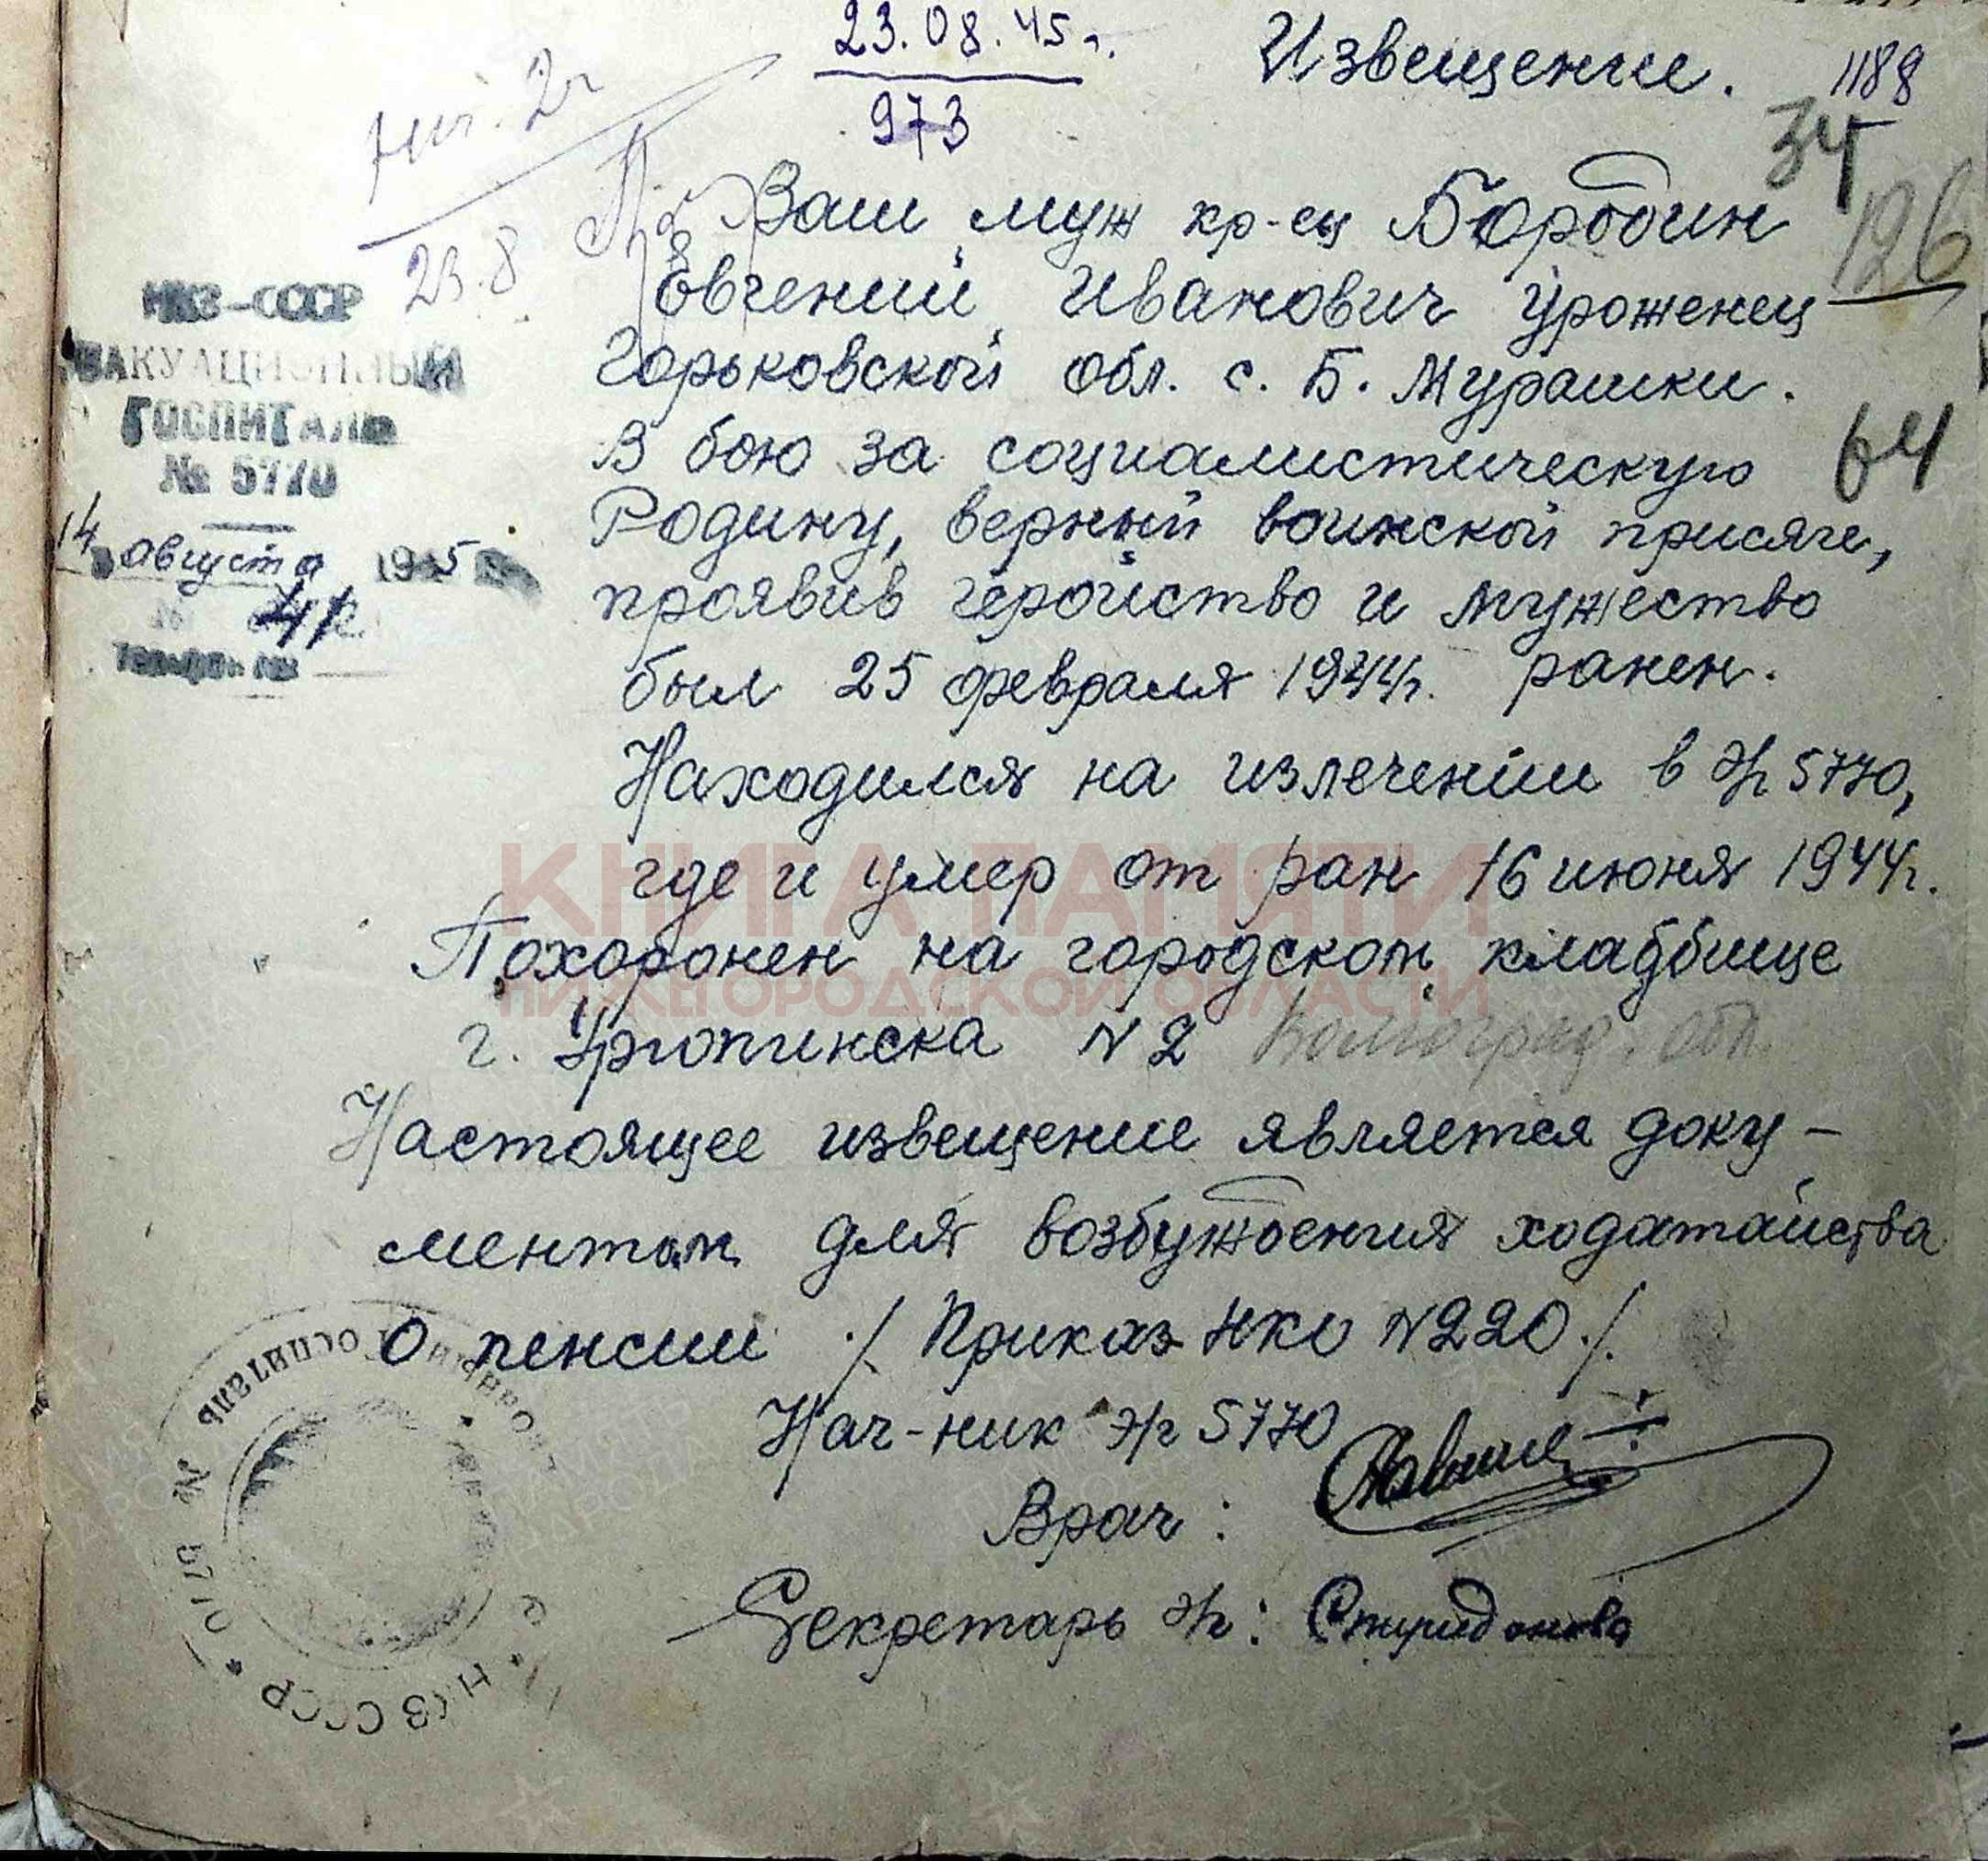 23.08.45 г.
973
Извещение.
1188
34
126
64
23.8
НКЗ-СССР
ЭВАКУАЦИОННЫЙ
ГОСПИТАЛЬ
№ 5770
14 августа 1945
Ваш муж кр-ец Бородин
Евгений Иванович Уроженец
Горьковской обл. с. Б. Мурашки.
В бою за социалистическую
Родину, верный воинской присяге,
проявив геройство и мужество
был 25 февраля 1944г. ранен.
Находился на излечении в эг 5770,
где и умер от ран 16 июня 1944г.
Похоронен на городском кладбище
г. Урюпинска N 2 Волгоград. обл.
Настоящее извещение является доку-
ментом для возбуждения ходатайства
о пенсии ./ Приказ НКО N220 ./.
Нач-ник эг 5770
Врач:
Секретарь эг: Спиридонова
ГОСПИТАЛЬ № 5770 * НКЗ СССР *
КНИГА ПАМЯТИ
НИЖЕГОРОДСКОЙ ОБЛАСТИ
ПАМЯТЬ НАРОДА